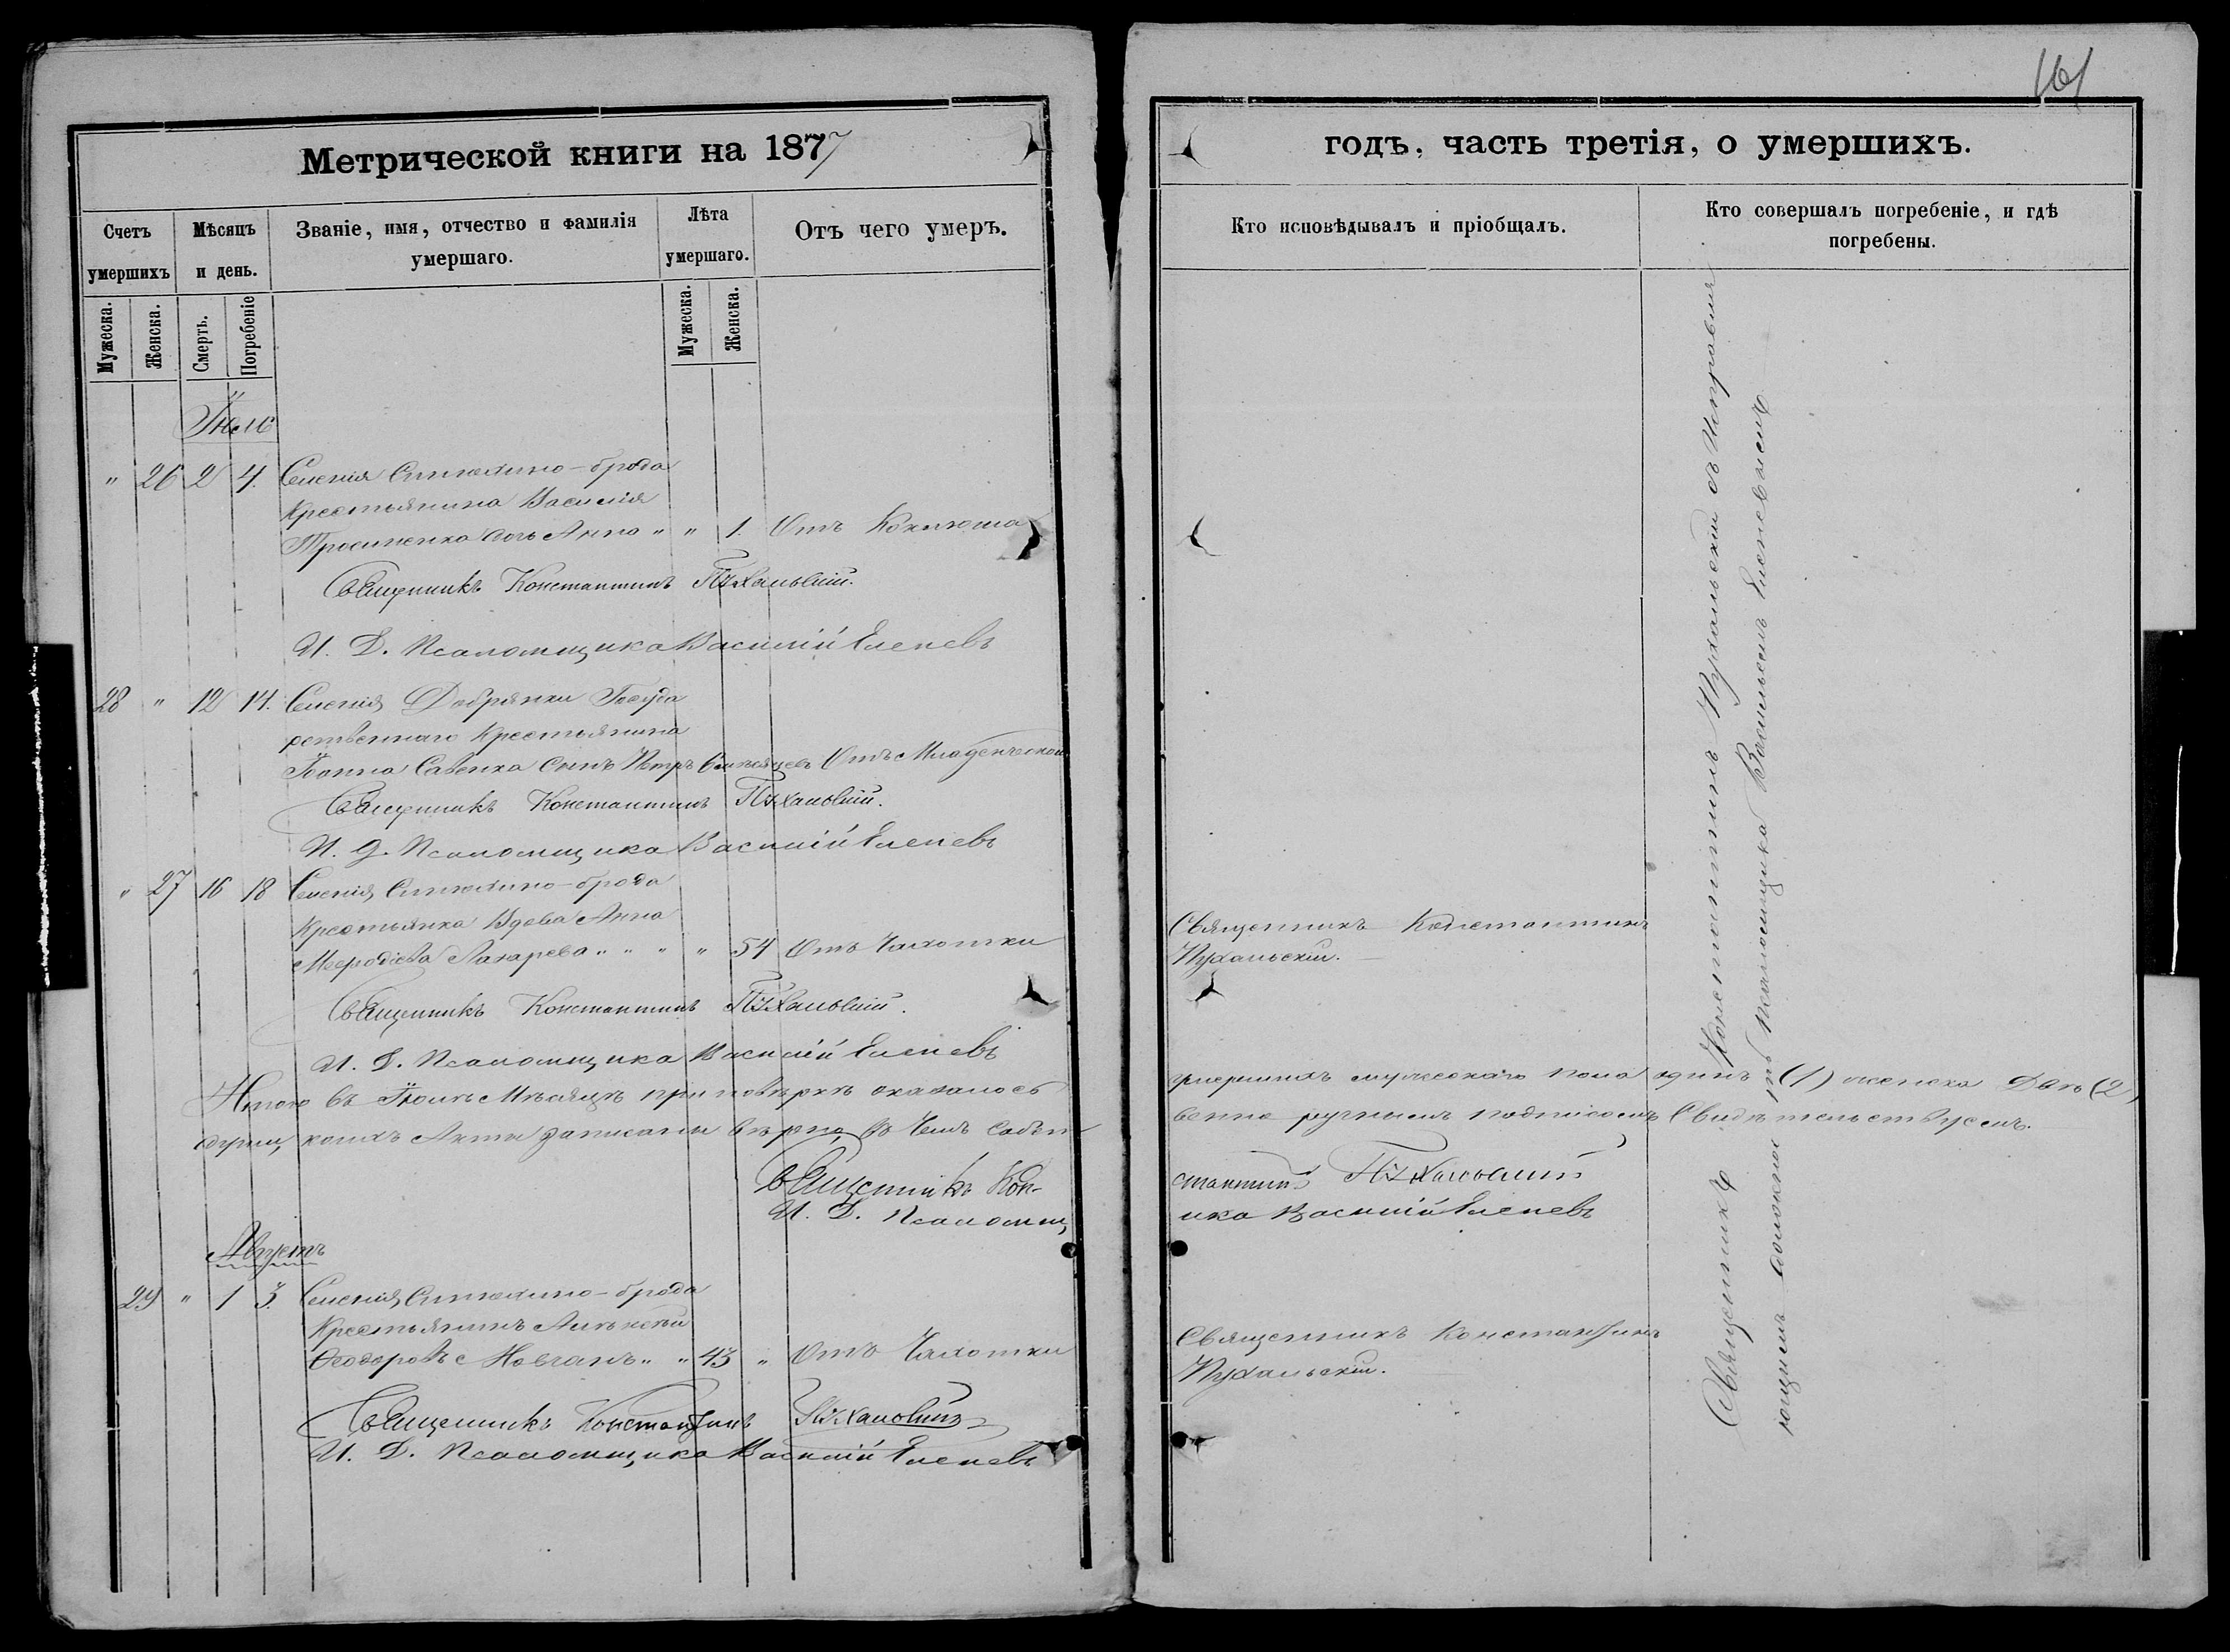 161
Метрической книги на 1877
годъ, часть третія, о умершихъ.
Счетъ умершихъ
Мѣсяцъ и день.
Званіе, имя, отчество и фамилія умершаго.
Лѣта умершаго.
Отъ чего умеръ.
Кто исповѣдывалъ и пріобщалъ.
Кто совершалъ погребеніе, и гдѣ погребены.
Мужеска.
Женска.
Смерть.
Погребеніе
Мужеска.
Женска.
" 26 2 4. Селенія Синюхино-брода
Крестьянина Василія
Тросиненка дочь Анна " " 1. Отъ Коклюша
Священникъ Константинъ Пухальскій.
И. Д. Псаломщика Василій Еленевъ
28 " 12 14. Селенія Добрянки Госуда
рственнаго Крестьянина
Іоанна Савенка сынъ Петръ 6 мѣсяцевъ Отъ Младенческой
Священникъ Константинъ Пухальскій.
И. Д. Псаломщика Василій Еленевъ
" 27 16 18 Селенія Синюхино-брода
Крестьянка Вдова Анна
Меѳодіева Лазарева " " " " 54 Отъ Чахотки
Священникъ Константинъ
Пухальскій.
Священникъ Константинъ Пухальскій.
И. Д. Псаломщика Василій Еленевъ
Итого въ Іюлѣ Мѣсяцѣ при повѣркѣ оказалось умершихъ мужескаго пола одинъ (1) женска Двѣ (2)
души, коихъ Акты записаны вѣрно, въ чемъ собственно ручнымъ подписомъ Свидѣтельствуемъ.
Священникъ Константинъ Пухальскій
И. Д. Псаломщика Василій Еленевъ
Августъ
29 " 1 3. Селенія Синюхино-брода
Крестьянинъ Алексѣй
Ѳеодоровъ Новганъ " " 43 " Отъ Чахотки
Священникъ Константинъ
Пухальскій.
Священникъ Константинъ Пухальскій
И. Д. Псаломщика Василій Еленевъ
Священникъ Константинъ Пухальскій съ Исправля
ющимъ должность Псаломщика Василіемъ Еленевымъ